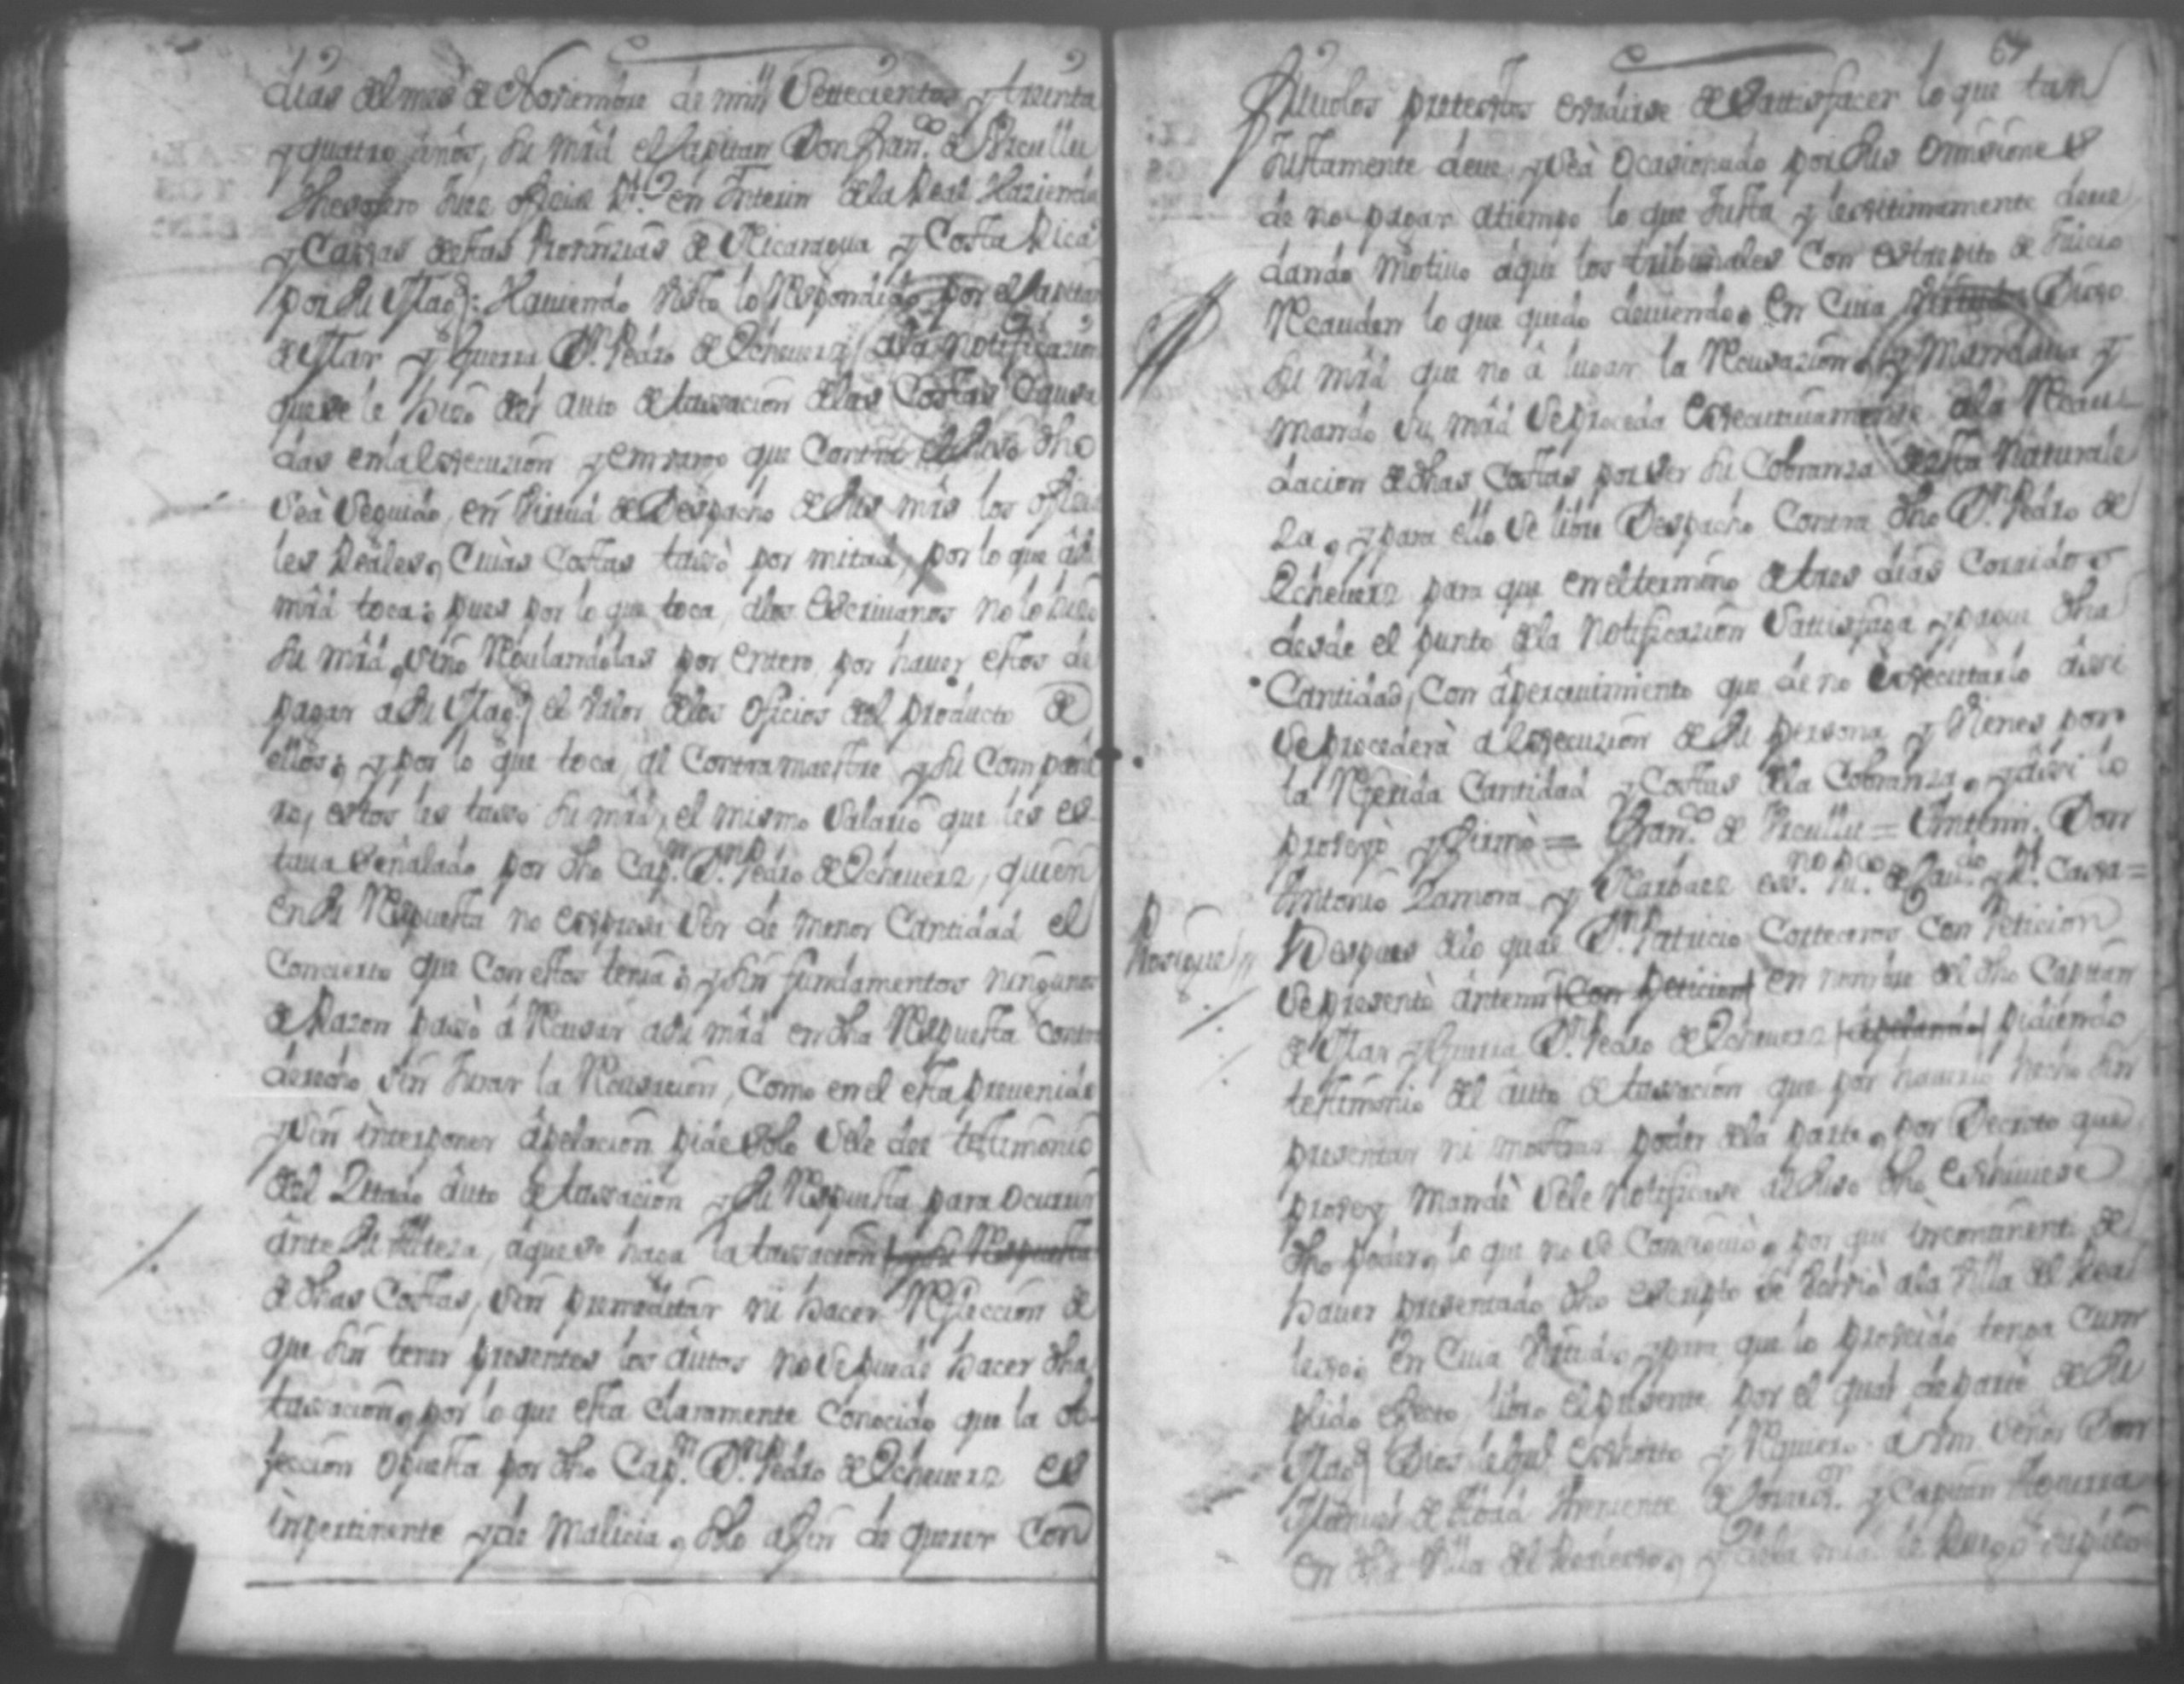 dias del mes de Noviembre de mill Settecientos y treinta
y quatro años, su mrd el Capitan Don Fran.co de Arcullu
Thesorero Juez oficial R.l en Interin de la Real Hazienda
y Caxas destas Provinzias de Nicaragua y Costa Rica
por su Mag.d: Haviendo visto lo Respondido por el Capitan
de Mar y Guerra D.n Pedro de Echeverz a la notificazion
que se le hizo del auto de tassacion de las Costas Causa
das en la Execuzion y embargo que Contra el suso dho
se à seguido, en virtud de Despacho de sus mrds los oficia
les Reales, Cuias Costas tassò por mitad, por lo que à su
mrd toca; pues por lo que toca, a los Escrivanos no lo hizo
su mrd, sino Regulandolas por entero, por haver estos de
pagar a su Mag.d el valor de los oficios del producto de
ellos; y por lo que toca, al Contramaestre y su Compañe
ro, estos les tasso su mrd, el mismo Salario que les es-
tava señalado por dho Cap.n D.n Pedro de Echeverz, quien
en su Respuesta no expresa ser de menor Cantidad el
Concierto que Con estos tenia; y sin fundamentos ningunos
de Razon passò à Recusar a su mrd en dha Respuesta contra
derecho, sin Jurar la Recusacion, Como en el esta prevenido
y sin interponer àpelacion pide solo se le dee testimonio
del Zitado auto de tassacion y su Respuesta para ocurrir
ante su Alteza, à que se haga la tassacion y su Respuesta
de dhas Costas, sin premeditar ni hacer Refleccion de
que sin tener presentes los autos no se puede hacer dha
tassacion, por lo que esta claramente Conocido que la ob-
jeccion opuesta por dho Cap.n D.n Pedro de Echeverz es
inpertinente y de malicia, solo a fin de querer Con
64
frivolos pretextos evadirse de Sattisfacer lo que tan
Justamente deve, y se à ocasionado por sus omisiones
de no pagar à tiempo lo que Justa y lexitimamente deve
dando motivo à que los tribunales Con estrepito de Juicio
Recauden lo que quedo deviendo; En Cuia virtud Dixo
su mrd que no à lugar la Recusazion, y mandava y
mando su mrd se proceda Executivamente a la Recau-
dacion de dhas Costas por ser su Cobranza desta naturale
za, y para ello se libre Despacho Contra dho D.n Pedro de
Echeverz para que en el termino de tres dias Corridos
desde el punto de la notificazion Sattisfaga y pague dha
Cantidad, Con àpercevimiento que de no Executarlo àssi
se procederà à Execuzion de su persona y Vienes por
la Referida Cantidad y Costas de la Cobranza, y assi lo
proveyò y firmò = Fran.co de Arcullu = Antemi. Don
Antonio Zamora y Narbaez ess.no pu.co de Gov.no y R.l Caxa =
Prosigue
Despues de lo qual D.n Patricio Corteceros Con Peticion
se presentò antemi Con Peticion en nombre del dho Capitan
de Mar y Guerra D.n Pedro de Echeverz apelando pidiendo
testimonio del auto de tassacion que por haverlo hecho sin
presentar ni mostrar poder de la parte, por Decreto que
provey mandè se le notificase al suso dho Exhiviese
dho poder, lo que no se Consiguio, por que incontinenti de
haver presentado dho escripto se bolviò a la Villa del Real
lejo; en Cuia virtud, y para que lo proveido tenga Cum
plido efecto, libro el presente por el qual de parte de su
Mag.d Dios le gu.e exhorto y Requiero à Vm. Señor Don
Manuel de Theniente de Govern.or y Capitan à Guerra
en dha Villa del Realejo, y de la mia le Ruego suplico